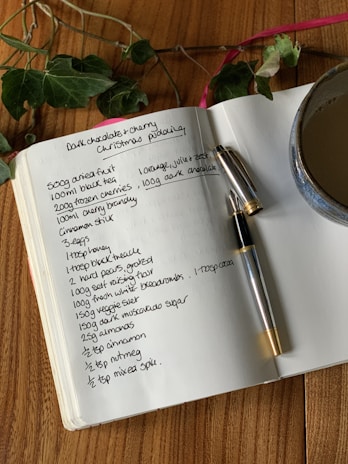 Dark chocolate + cherry
Christmas pudding
500g dried fruit
100ml black tea 1 orange, juice + zest
200g frozen cherries, 100g dark chocolate
100ml cherry brandy
Cinnamon stick
3 eggs
1 tbsp honey
1 tbsp black treacle
2 hard pears, grated
100g self raising flour
100g fresh white breadcrumbs, 1 tbsp cocoa
150g veggie suet
150g dark muscovado sugar
25g almonds
½ tsp cinnamon
½ tsp nutmeg
½ tsp mixed spice.